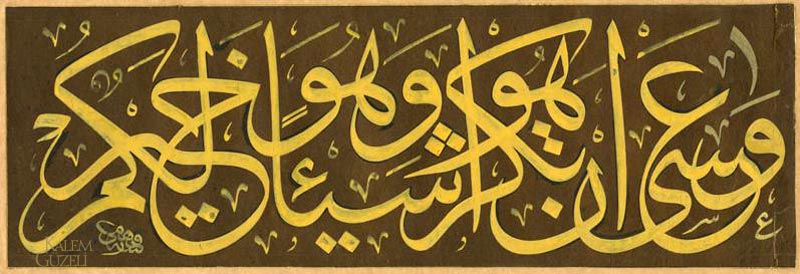 وعسى ان تكرهوا شيئا وهو خير لكم
KALEM GÜZELİ